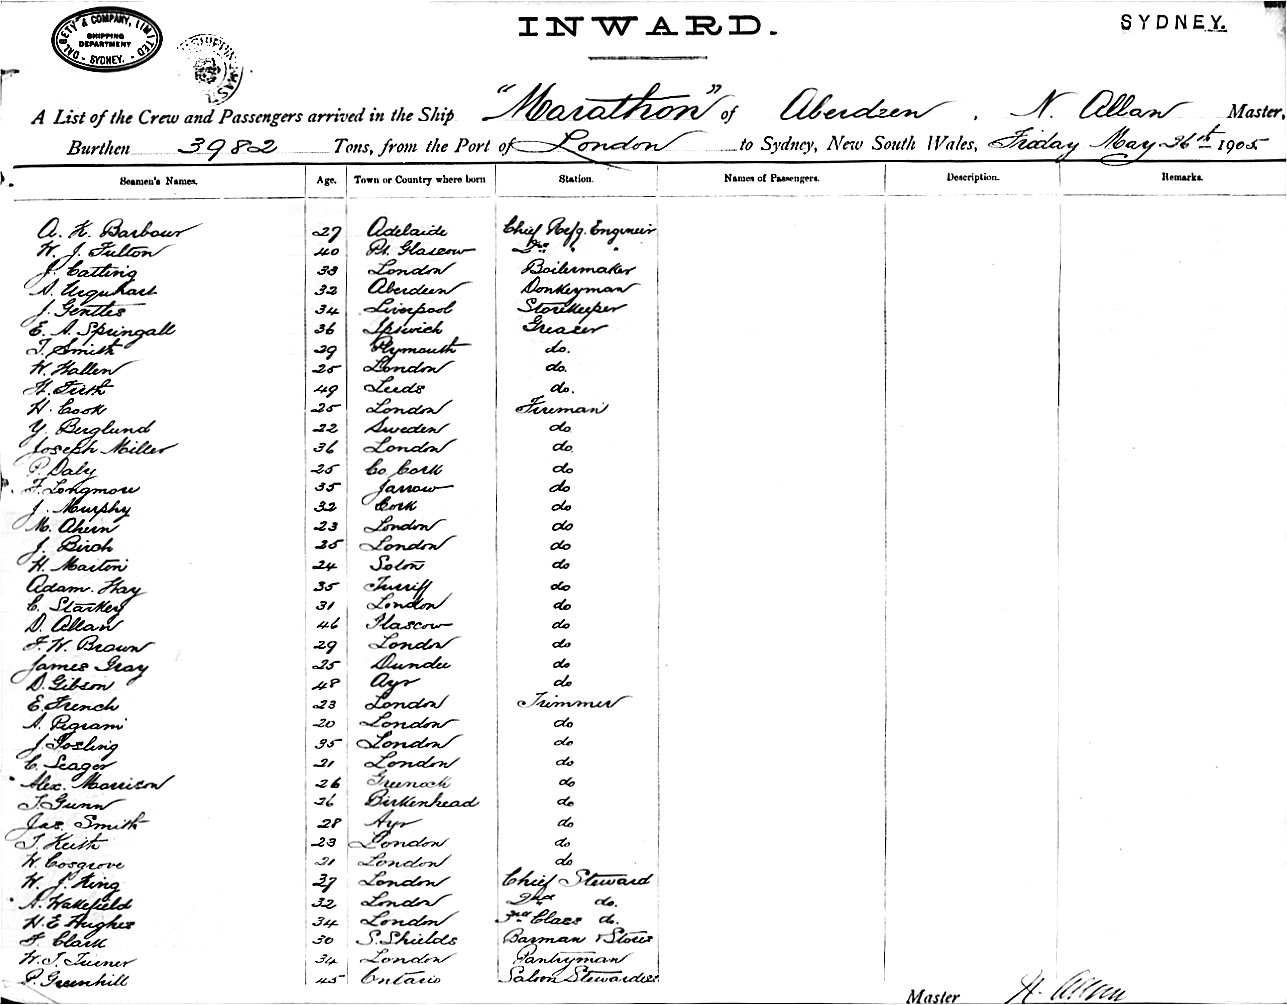 DALGETY & COMPANY, LIMITED
SHIPPING
DEPARTMENT
SYDNEY.
INWARD.
SYDNEY.
A List of the Crew and Passengers arrived in the Ship "Marathon" of Aberdeen, N. Allan Master,
Burthen 3982 Tons, from the Port of London to Sydney, New South Wales, Friday May 26th 1905
Seamen's Names. Age. Town or Country where born Station. Names of Passengers. Description. Remarks.
A. K. Barbour 27 Adelaide Chief Refg. Engineer
W. J. Fulton 40 Pt. Glascow 2nd " "
J. Catling 33 London Boilermaker
A. Urquhart 32 Aberdeen Donkeyman
J. Gentles 34 Liverpool Storekeeper
E. A. Springall 36 Ipswich Greaser
T. Smith 29 Plymouth do.
W. Hallen 25 London do.
H. Firth 49 Leeds do.
H. Cook 25 London Fireman
Y. Berglund 22 Sweden do
Joseph Miller 36 London do
P. Daly 25 Co Cork do
F. Longmore 35 Jarrow do
J. Murphy 32 Cork do
M. Ahern 23 London do
J. Birch 25 London do
H. Martin 24 do
Adam Hay 35 Turriff do
C. Starkey 31 London do
D. Allan 46 Glascow do
F. W. Brown 29 London do
James Gray 25 Dundee do
D. Gibson 48 Ayr do
E. French 23 London Trimmer
A. Pegram 20 London do
J. Gosling 35 London do
C. Seager 21 London do
Alex. Morrison 26 Greenock do
T. Gunn 26 Birkenhead do
Jas. Smith 28 Ayr do
T. Keith 23 London do
W. Cosgrove 21 London do
W. J. King 37 London Chief Steward
A. Wakefield 32 London 2nd do.
H. E Hughes 34 London 3rd Class do.
F. Clark 30 S. Shields Barman & Stores
W. T. Turner 34 London Pantryman
P. Greenhill 45 Ontario Saloon Stewardess
Master N. Allan